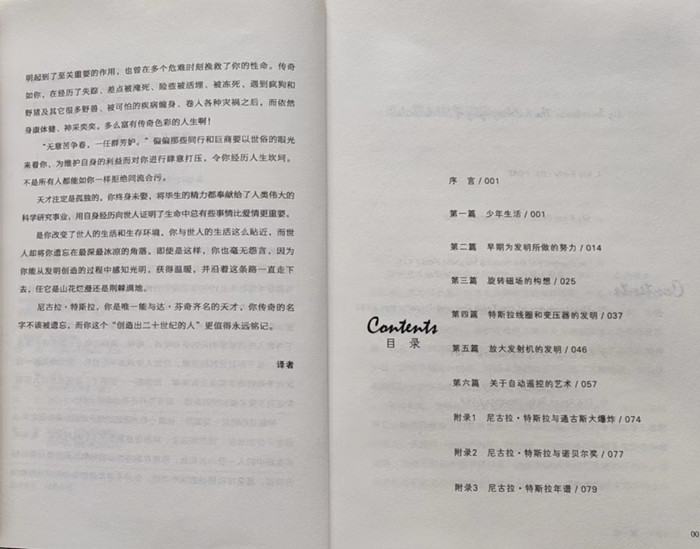 明起到了至关重要的作用，也曾在多个危难时刻挽救了你的性命。传奇
如你，在经历了失踪、差点被淹死、险些被活埋、被冻死、遇到疯狗和
野猪及其它很多野兽、被可怕的疾病缠身、卷入各种灾祸之后，而依然
身康体健、神采奕奕。多么富有传奇色彩的人生啊！
“无意苦争春，一任群芳妒。”偏偏那些同行和巨商要以世俗的眼光
来看你，为维护自身的利益而对你进行肆意打压，令你经历人生坎坷。
不是所有人都能如你一样拒绝同流合污。
天才注定是孤独的，你终身未娶，将毕生的精力都奉献给了人类伟大的
科学研究事业，用自身经历向世人证明了生命中总有些事情比爱情更重要。
是你改变了世人的生活和生存环境，你与世人的生活这么贴近，而世
人却将你遗忘在最深最冰凉的角落，即使是这样，你也毫无怨言，因为
你能从发明创造的过程中感知光明，获得温暖，并沿着这条路一直走下
去，任它是山花烂漫还是荆棘满地。
尼古拉·特斯拉，你是唯一能与达·芬奇齐名的天才，你传奇的名
字不该被遗忘，而你这个“创造出二十世纪的人”更值得永远铭记。
译者
Contents
目 录
序 言 / 001
第一篇 少年生活 / 001
第二篇 早期为发明所做的努力 / 014
第三篇 旋转磁场的构想 / 025
第四篇 特斯拉线圈和变压器的发明 / 037
第五篇 放大发射机的发明 / 046
第六篇 关于自动遥控的艺术 / 057
附录1 尼古拉·特斯拉与通古斯大爆炸 / 074
附录2 尼古拉·特斯拉与诺贝尔奖 / 077
附录3 尼古拉·特斯拉年谱 / 079
00